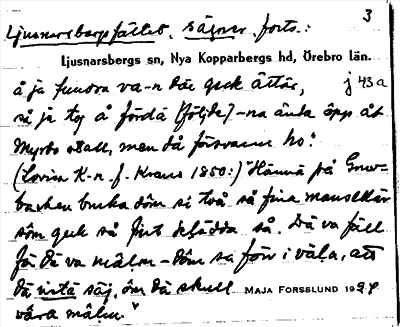 3
Ljusnarsbergsfältet. Sägner, forts.:
Ljusnarsbergs sn, Nya Kopparbergs hd, Örebro län.
å ja fundra va-n där geck ättär, j 43a
så ja tog å förda (följde)-na ända äpp åt
Myrbo skall, men då försvann ho."
(Lovisa K-n f. Kraus 1850:) "Hännä på Gruv-
backen bruka döm si två så fina mansklär
söm geck så fint klädda så. Dä va fäll
för dä va mälm - döm sa förr i väla, att
dä ista säg, öm dä skull
våra mälm."
MAJA FORSSLUND 1924